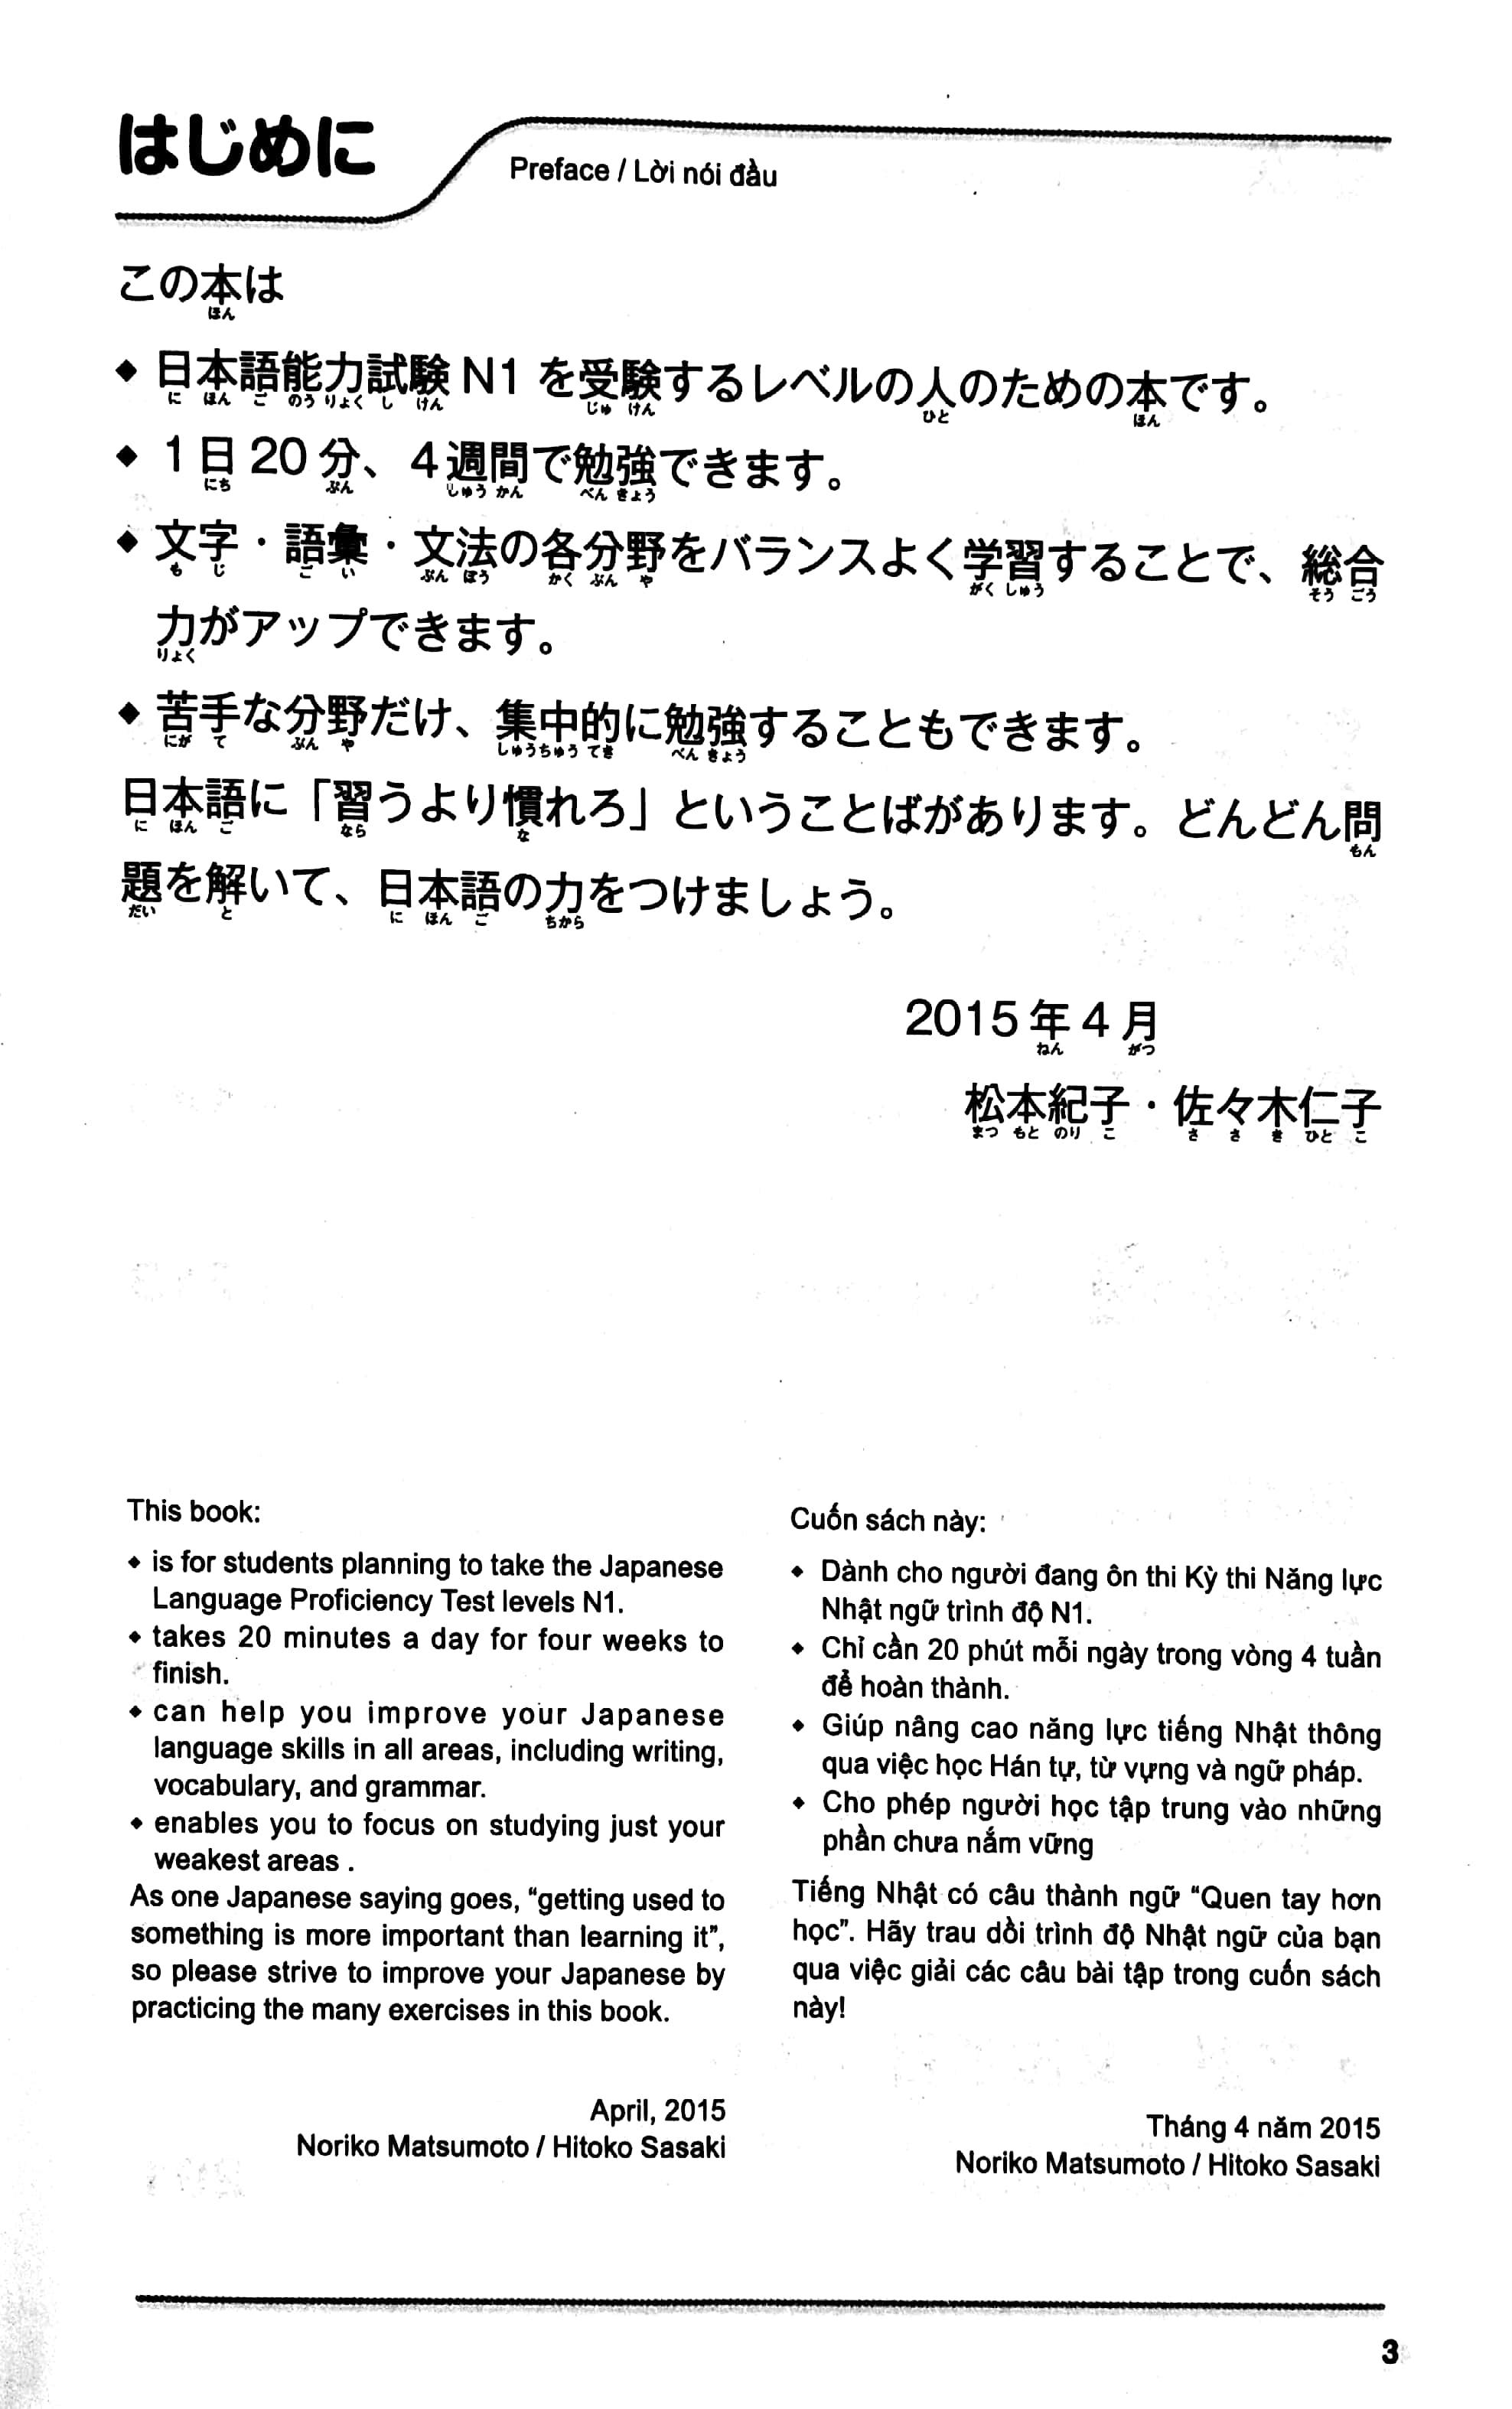 はじめに
Preface / Lời nói đầu
この本は
ほん
◆ 日本語能力試験 N1 を受験するレベルの人のための本です。
に ほん ご のう りょく し けん じゅ けん ひと ほん
◆ 1日20分、4週間で勉強できます。
にち ぷん しゅう かん べん きょう
◆ 文字・語彙・文法の各分野をバランスよく学習することで、総合
も じ ご い ぶん ぽう かく ぶん や がく しゅう そう ごう
力がアップできます。
りょく
◆ 苦手な分野だけ、集中的に勉強することもできます。
にが て ぶん や しゅうちゅう てき べん きょう
日本語に「習うより慣れろ」ということばがあります。どんどん問
に ほん ご なら な もん
題を解いて、日本語の力をつけましょう。
だい と に ほん ご ちから
2015年4月
ねん がつ
松本紀子・佐々木仁子
まつ もと のり こ さ さ き ひと こ
This book:
◆ is for students planning to take the Japanese
Language Proficiency Test levels N1.
◆ takes 20 minutes a day for four weeks to
finish.
◆ can help you improve your Japanese
language skills in all areas, including writing,
vocabulary, and grammar.
◆ enables you to focus on studying just your
weakest areas .
As one Japanese saying goes, “getting used to
something is more important than learning it”,
so please strive to improve your Japanese by
practicing the many exercises in this book.
April, 2015
Noriko Matsumoto / Hitoko Sasaki
Cuốn sách này:
◆ Dành cho người đang ôn thi Kỳ thi Năng lực
Nhật ngữ trình độ N1.
◆ Chỉ cần 20 phút mỗi ngày trong vòng 4 tuần
để hoàn thành.
◆ Giúp nâng cao năng lực tiếng Nhật thông
qua việc học Hán tự, từ vựng và ngữ pháp.
◆ Cho phép người học tập trung vào những
phần chưa nắm vững
Tiếng Nhật có câu thành ngữ “Quen tay hơn
học”. Hãy trau dồi trình độ Nhật ngữ của bạn
qua việc giải các câu bài tập trong cuốn sách
này!
Tháng 4 năm 2015
Noriko Matsumoto / Hitoko Sasaki
3